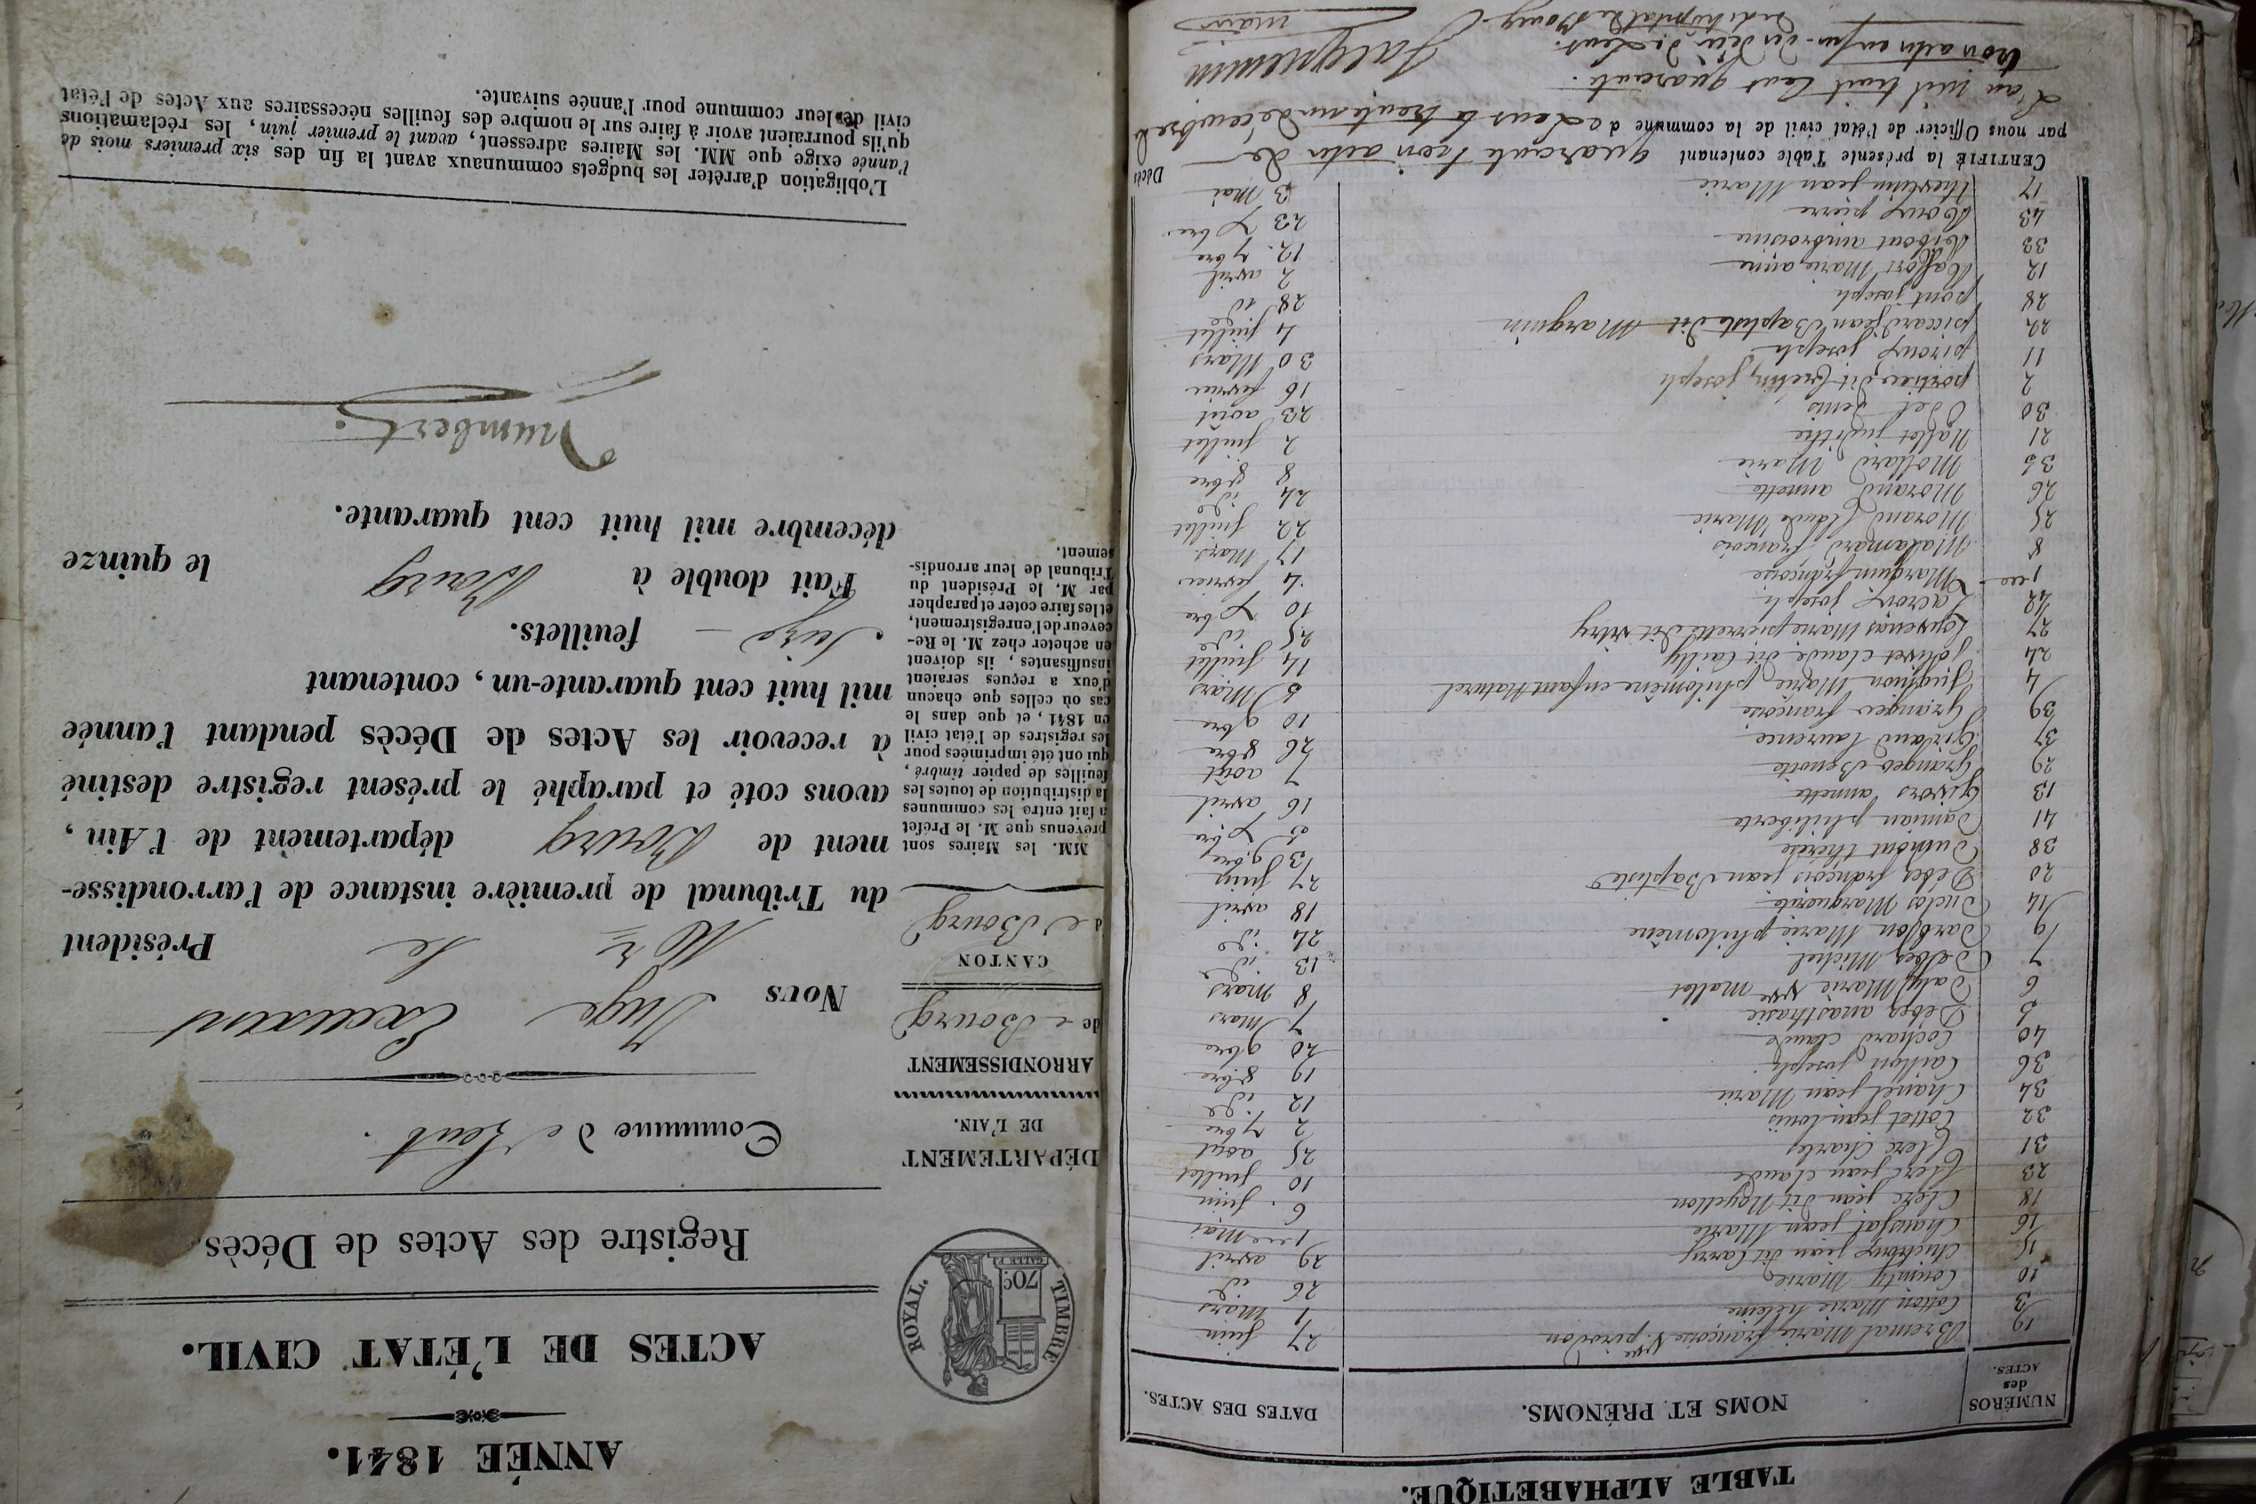 TABLE ALPHABETIQUE.
NUMÉROS des ACTES. NOMS ET PRÉNOMS. DATES DES ACTES.
19 Bremal Marie françoise vve pirodon 27 juin
3 Cotton Marie héleine 1 Mars
10 Marie 26 id
15 jean dit Carry 29 avril
16 jean Marie 1er Mai
18 Clerc jean dit 6 juin
23 Clerc jean claude 10 juillet
31 Clerc Charles 25 aout
32 Cottet jean louis 2 7bre
34 Chanel jean Marie 12 id
36 joseph 19 8bre
40 Cochard claude 20 9bre
5 anasthasie 7 Mars
6 Marie vve mallet 8 Mars
7 Michel 13 id
9 Marie philomène 24 id
14 Duclos Marguerite 18 avril
20 françois jean Baptiste 27 juin
38 Dumont thérèse 13 9bre
41 Damian philiberte
13 Givors annette 16 avril
29 Granger Benoite 7 août
37 laurence 26 8bre
39 Granger françoise 10 9bre
4 Marie philomène enfant Naturel 5 Mars
24 Jolivet claude dit Cailly 14 juillet
27 Marie pierrette dit vitry 25 id
42 Lacroix joseph 10
1er Marguin françoise 4 fevrier
8 Malamard françois 17 Mars
25 Morand claude Marie 22 juillet
26 Morand annette 24 id
35 Mollard Marie 8 8bre
21 Nallet judithe 2 juillet
30 Odet Denis 23 août
2 dit joseph 16 fevrier
11 piroux joseph 30 Mars
22 piccard jean Baptiste dit Marguin 4 juillet
28 pont joseph 28 id
12 Marie anne 2 avril
33 Ribout ambroisine 12 7bre
43 Roux pierre 23
17 thevenin jean Marie 3 Mai
CERTIFIÉ la présente Table contenant quarante trois actes de Décès
par nous Officier de l'état civil de la commune de Lent le trente un décembre
l'an mil huit cent quarante.
trois actes
maire
ANNÉE 1841.
ACTES DE L'ÉTAT CIVIL.
Registre des Actes de Décès.
TIMBRE ROYAL.
70c.
DÉPARTEMENT
DE L'AIN.
ARRONDISSEMENT
de Bourg
CANTON
de Bourg
MM. les Maires sont
prévenus que M. le Préfet
a fait entre les communes
la distribution de toutes les
feuilles de papier timbré,
qui ont été imprimées pour
les registres de l'état civil
en 1841, et que dans le
cas où celles que chacun
d'eux a reçues seraient
insuffisantes, ils doivent
en acheter chez M. le Re-
ceveur de l'enregistrement,
et les faire coter et parapher
par M. le Président du
Tribunal de leur arrondis-
sement.
Commune de Lent.
Nous Juge
le Président
du Tribunal de première instance de l'arrondisse-
ment de Bourg département de l'Ain,
avons coté et paraphé le présent registre destiné
à recevoir les Actes de Décès pendant l'année
mil huit cent quarante-un, contenant
seize feuillets.
Fait double à Bourg le quinze
décembre mil huit cent quarante.
L'obligation d'arrêter les budgets communaux avant la fin des six premiers mois de
l'année exige que MM. les Maires adressent, avant le premier juin, les réclamations
qu'ils pourraient avoir à faire sur le nombre des feuilles nécessaires aux Actes de l'état
civil de leur commune pour l'année suivante.